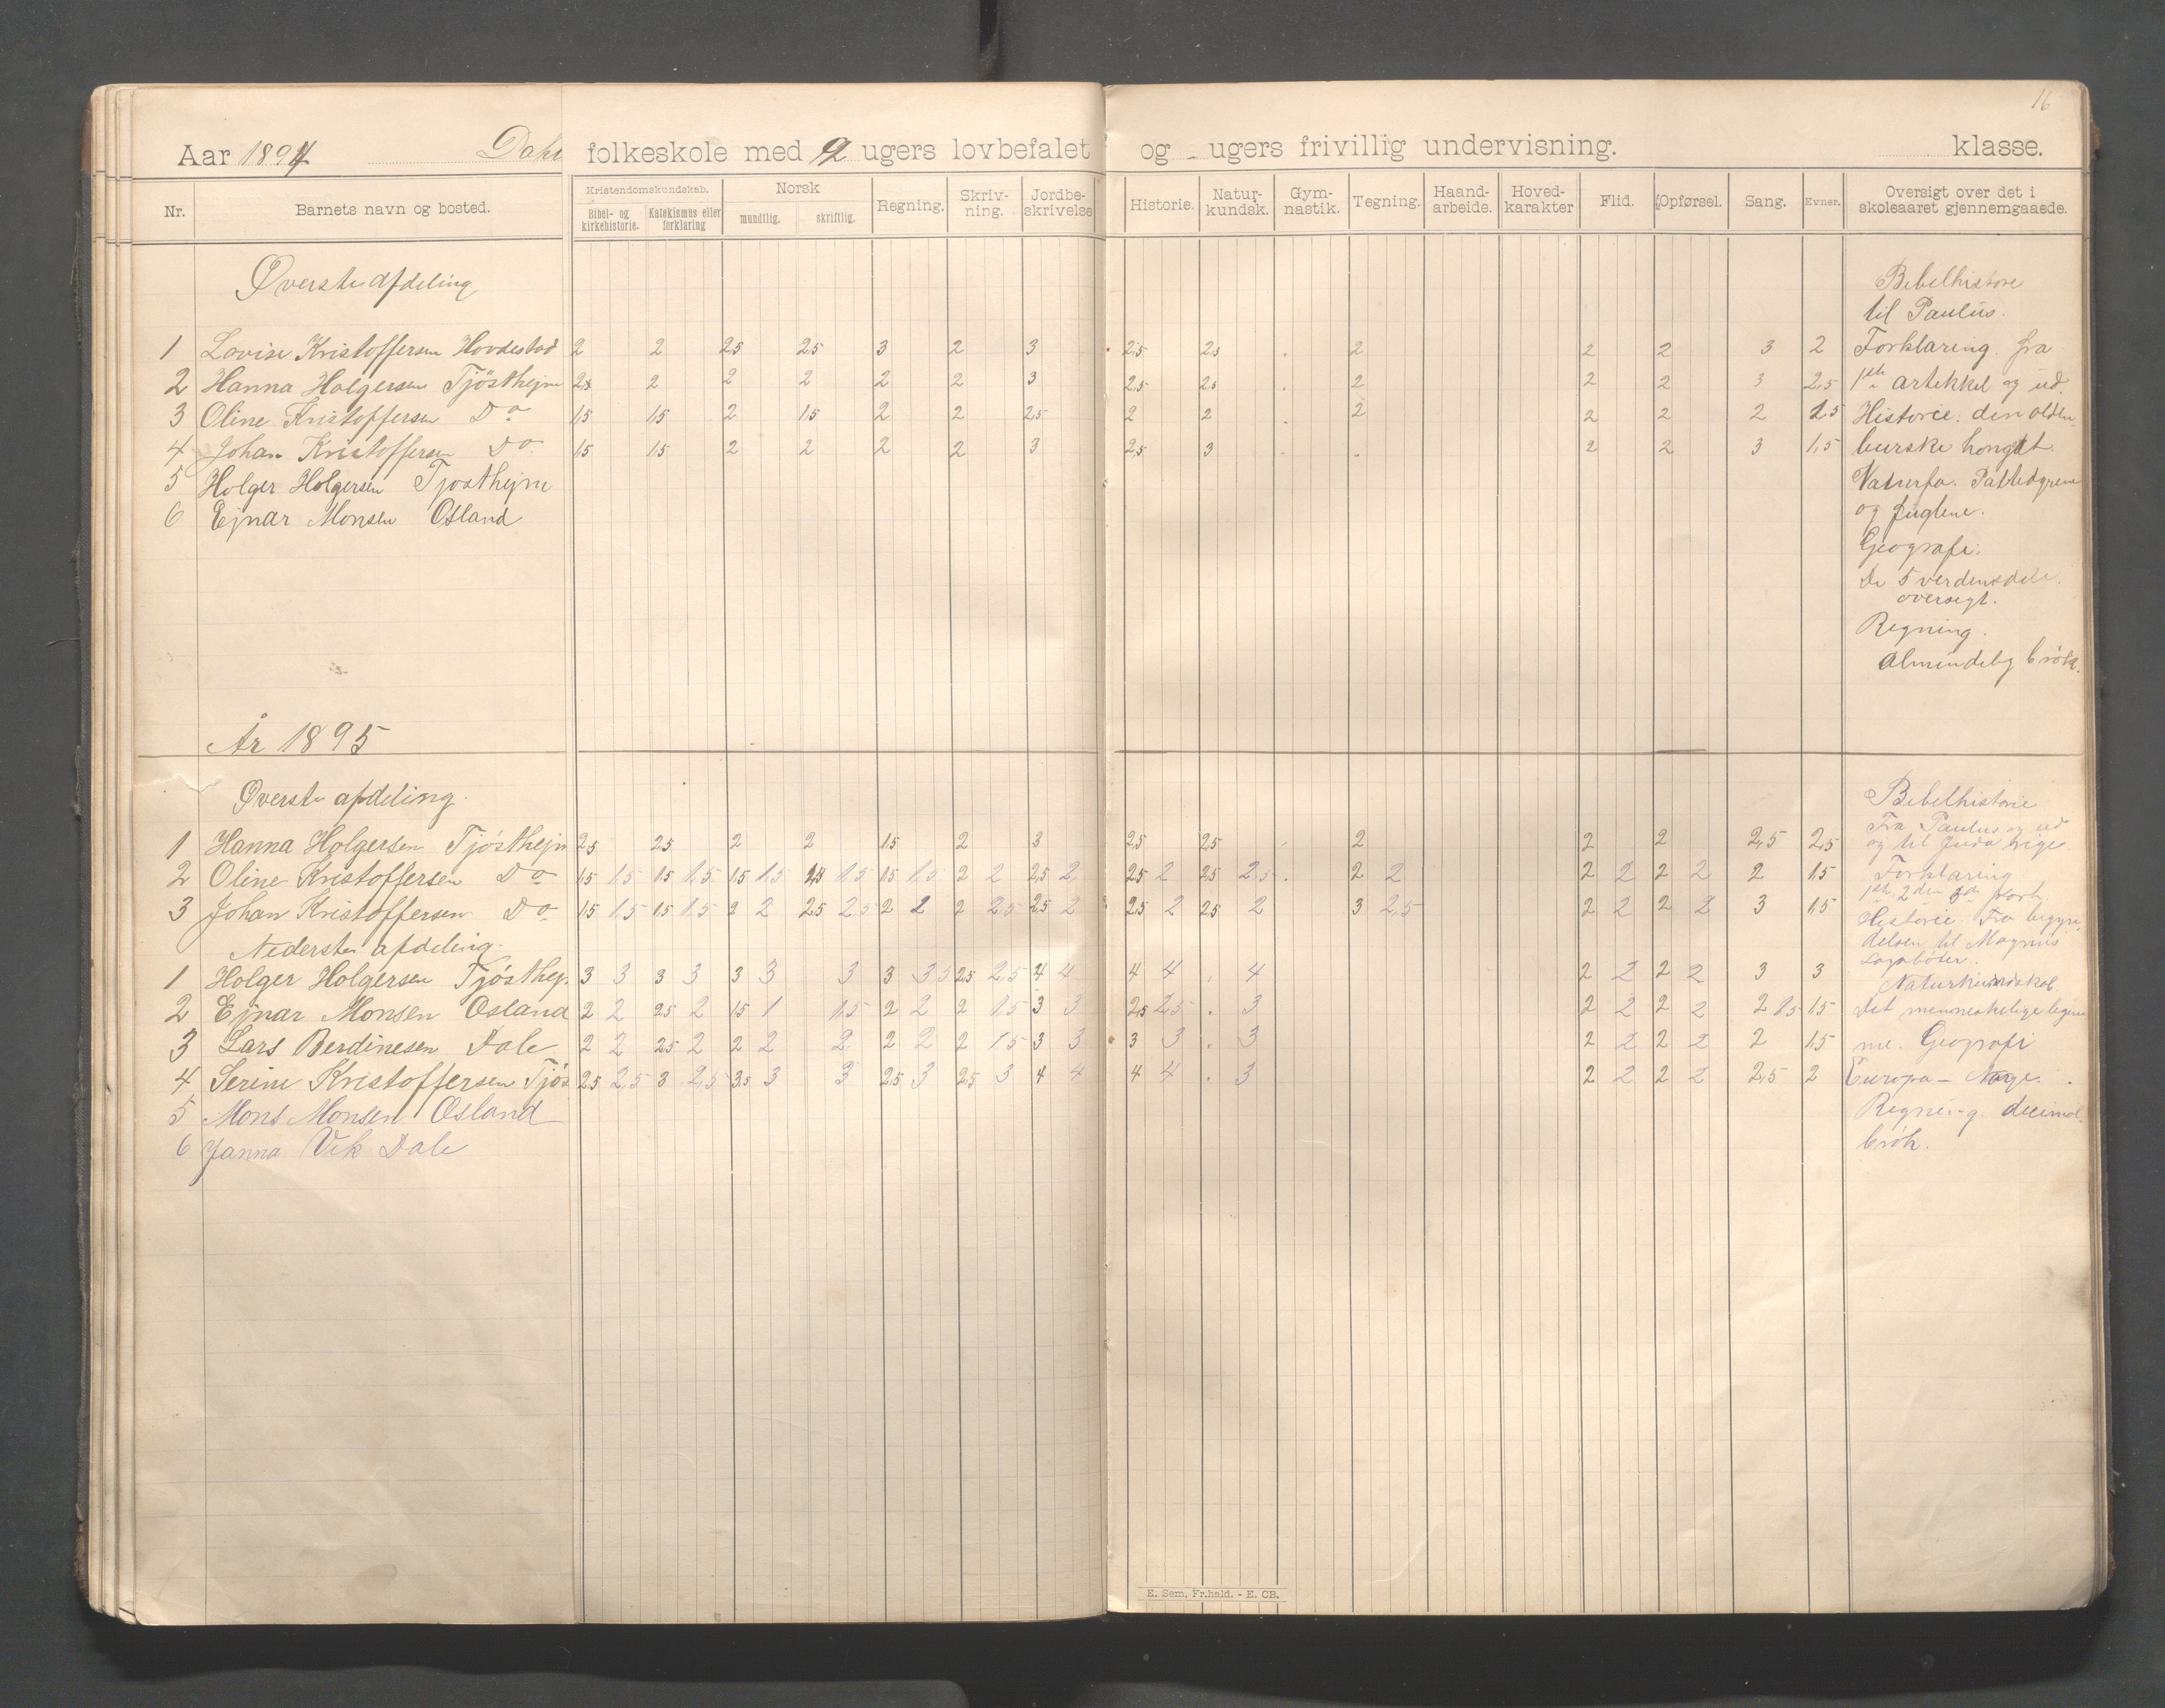 16
Aar 1894 Dahl folkeskole med 9 ugers lovbefalet og - ugers frivillig undervisning. klasse.
Nr. Barnets navn og bosted. Kristendomskundskab. Bibel- og kirkehistorie. Katekismus eller forklaring Norsk mundtlig. skriftlig. Regning. Skriv-ning. Jordbe-skrivelse Historie. Natur-kundsk. Gym-nastik. Tegning. Haand-arbeide. Hoved-karakter Flid. Opførsel. Sang. Evner. Oversigt over det i skoleaaret gjennemgaaede.
Øverste afdeling
1 Lovise Kristoffersen Hovdestad 2 2 2,5 2,5 3 2 3 2,5 2,5 . 2 2 2 3 2
2 Hanna Holgersen Tjøsthejm 2,5 2 2 2 2 2 3 2,5 2,5 . 2 2 2 3 2,5
3 Oline Kristoffersen Do 1,5 1,5 2 1,5 2 2 2,5 2 2 . 2 2 2 2 1,5
4 Johan Kristoffersen Do 1,5 1,5 2 2 2 2 3 2,5 3 . . 2 2 3 1,5
5 Holger Holgersen Tjøsthejm
6 Ejnar Monsen Osland
Bibelhistorie
til Paulus.
Forklaring fra
1ste artikkel og ud.
Historie: den olden-
burske kongæt.
Naturfa. Pattedyrene
og fuglene.
Geografi:
De 5 verdensdele.
oversigt.
Regning.
Almindelig brøk.
År 1895
Øverste afdeling.
1 Hanna Holgersen Tjøsthejm 2,5 2,5 2 2 1,5 2 3 2,5 2,5 . 2 2 2 2,5 2,5
2 Oline Kristoffersen Do 1,5 1,5 1,5 1,5 1,5 1,5 1,5 1,5 1,5 1,5 2 2 2,5 2 2,5 2 2,5 2,5 . 2 2 2 2 2 2 2 1,5
3 Johan Kristoffersen Do 1,5 1,5 1,5 1,5 2 2 2,5 2,5 2 2 2 2,5 2,5 2 2,5 2 2,5 2 3 2,5 2 2 2 2 3 1,5
Nederste afdeling.
1 Holger Holgersen Tjøsthej 3 3 3 3 3 3 3 3 3,5 2,5 2,5 4 4 4 4 . 4 2 2 2 2 3 3
2 Ejnar Monsen Osland 2 2 2,5 2 1,5 1 1,5 2 2 2 1,5 3 3 2,5 2,5 . 3 2 2 2 2 2 1,5 1,5
3 Lars Berdinesen Dale 2 2 2,5 2 2 2 2 2 2 2 1,5 3 3 3 3 . 3 2 2 2 2 2 1,5
4 Serine Kristoffersen Tjøs 2,5 2,5 3 2,5 3,5 3 3 2,5 3 2,5 3 4 4 4 4 . 3 2 2 2 2 2,5 2
5 Mons Monsen Osland
6 Janna Vik Dale
Bibelhistorie
Fra Paulus og ud
og til Juda rige
Forklaring
1ste 2den 3die part.
Historie. Fra begyn-
delsen til Magnus
Lagabøter.
Naturkundskab
Det menneskelige legem
me. Geografi
Europa – Norge.
Regning. decimal-
brøk.
E. Sem, Fr.hald. - E. CB.